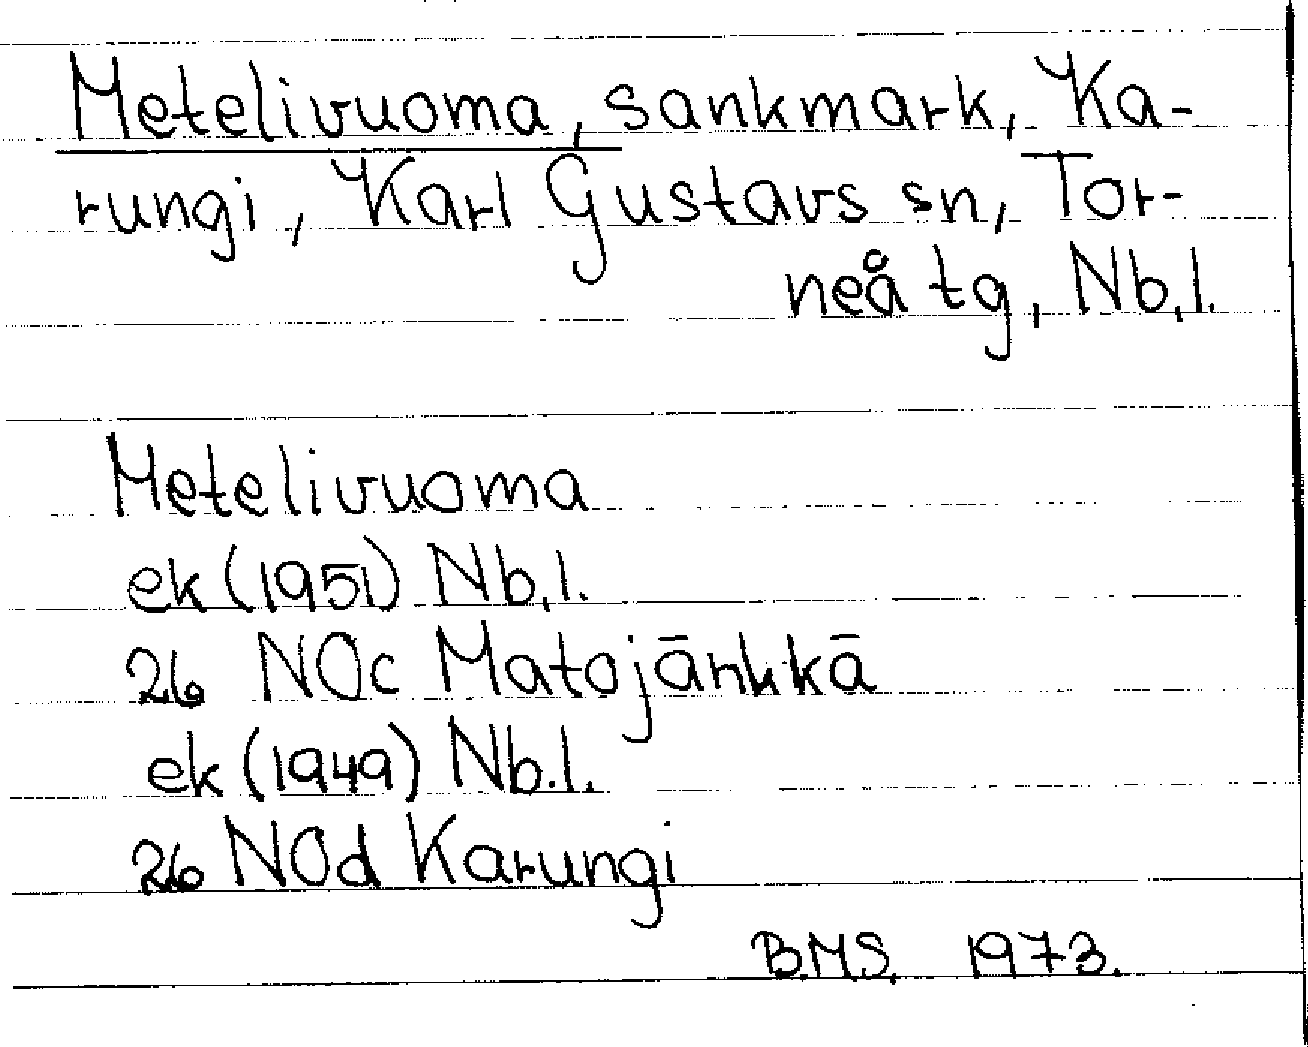 Metelivuoma, sankmark, Ka-
rungi, Karl Gustavs sn, Tor-
neå tg, Nb.l.
Metelivuoma
ek (1951) Nb.l.
26 NOc Matojänkkä
ek (1949) Nb.l.
26 NOd Karungi
B.M.S. 1973.